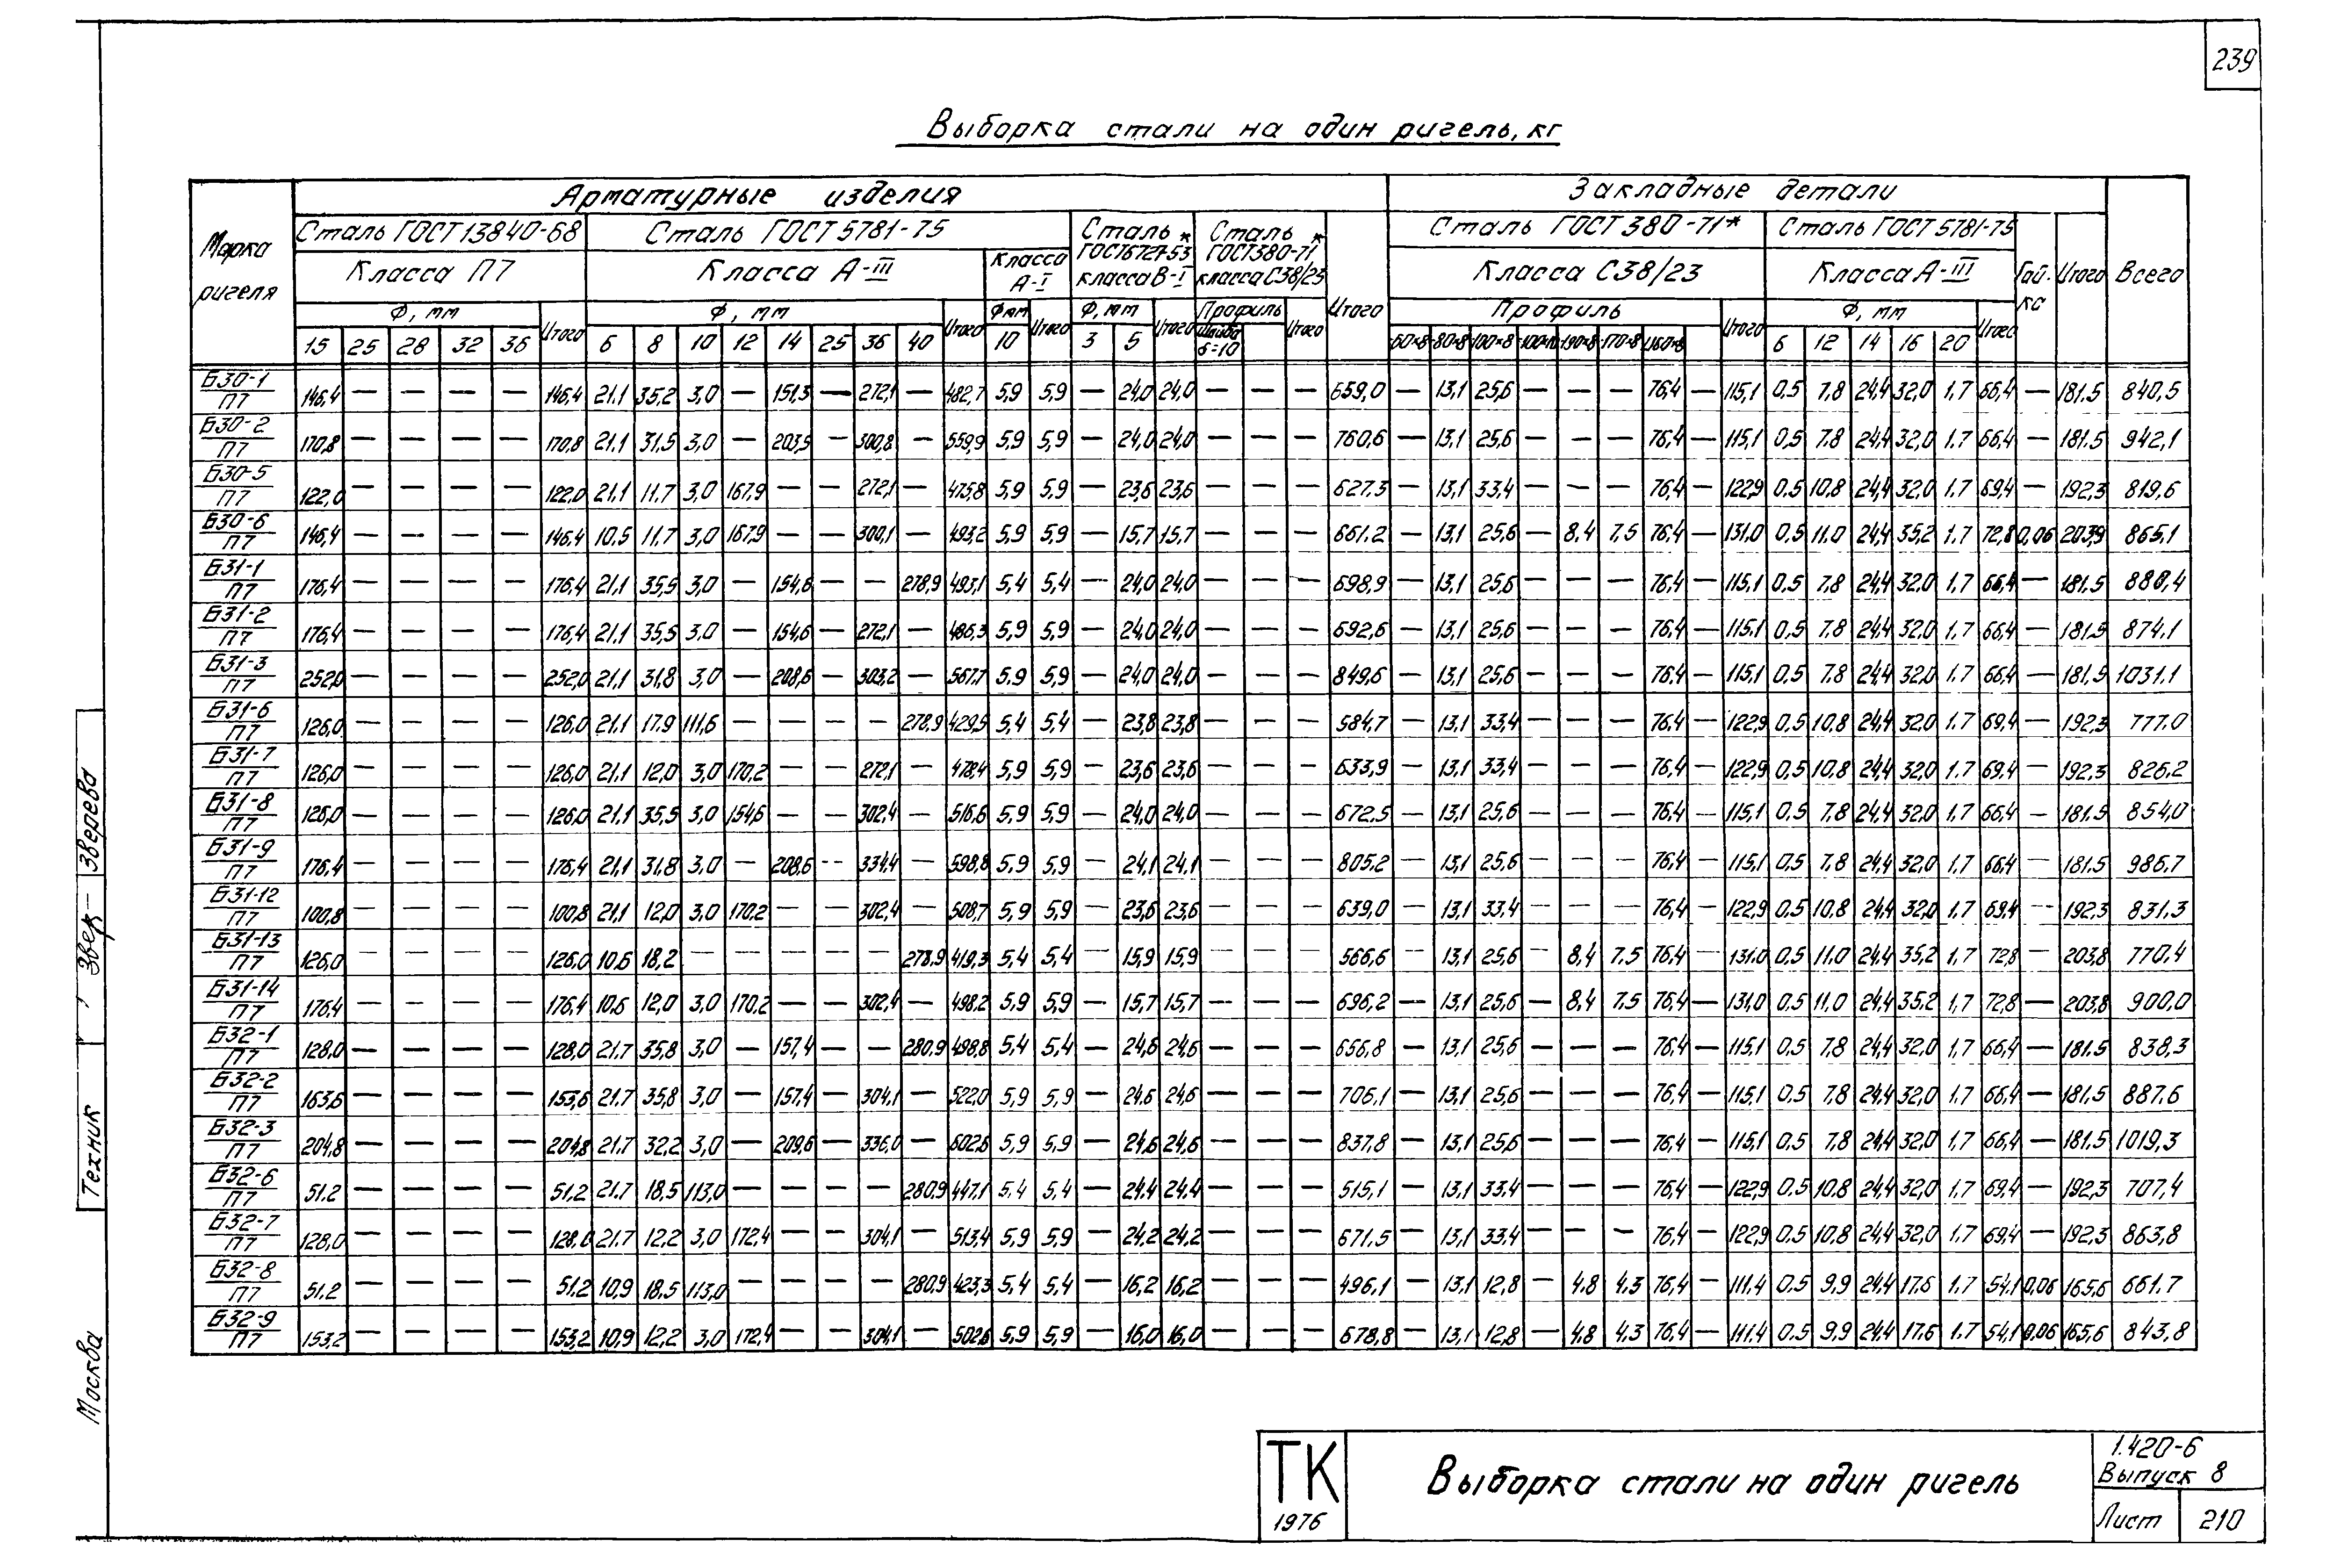 239
Выборка стали на один ригель, кг
Марка ригеля
Арматурные изделия
Закладные детали
Всего
Сталь ГОСТ 13840-68
Сталь ГОСТ 5781-75
Сталь ГОСТ 6727-53* класса В-I
Сталь ГОСТ 380-71* класса С38/23
Итого
Сталь ГОСТ 380-71*
Сталь ГОСТ 5781-75
Гайка
Итого
Класса П7
Класса А-III
Класса А-I
Класса С38/23
Класса А-III
Ф, мм Итого Ф, мм Итого Ф мм Итого Ф, мм Итого Профиль Итого Профиль Итого Ф, мм Итого
15 25 28 32 36 6 8 10 12 14 25 36 40 10 3 5 Шайба δ=10 60×8 80×8 100×8 190×8 170×8 6 12 14 16 20
Б30-1/П7 146,4 — — — — 146,4 21.1 35,2 3,0 — 151,3 — 272,1 — 482,7 5,9 5,9 — 24,0 24,0 — — — 659,0 — 13,1 25,6 — — — 76,4 — 115,1 0,5 7,8 24,4 32,0 1,7 66,4 — 181.5 840,5
Б30-2/П7 170,8 — — — — 170,8 21.1 31,5 3,0 — 203,5 — 300,8 — 559,9 5,9 5,9 — 24,0 24,0 — — — 760,6 — 13,1 25,6 — — — 76,4 — 115,1 0,5 7,8 24,4 32,0 1.7 66,4 — 181.5 942,1
Б30-5/П7 122,0 — — — — 122,0 21.1 11.7 3,0 167,9 — — 272,1 — 475,8 5,9 5,9 — 23,6 23,6 — — — 627.3 — 13,1 33,4 — — — 76,4 — 122,9 0,5 10,8 24,4 32,0 1.7 69,4 — 192,3 819,6
Б30-6/П7 146,4 — — — — 146,4 10.5 11.7 3,0 167,9 — — 300,1 — 493,2 5,9 5,9 — 15,7 15,7 — — — 661.2 — 13,1 25,6 — 8,4 7,5 76,4 — 131,0 0,5 11,0 24,4 35,2 1,7 72,8 0,06 203,9 865,1
Б31-1/П7 176,4 — — — — 176,4 21,1 35,5 3,0 — 154,6 — — 278,9 493,1 5,4 5,4 — 24,0 24,0 — — — 698,9 — 13,1 25,6 — — — 76,4 — 115,1 0,5 7,8 24,4 32,0 1.7 66,4 — 181.5 880,4
Б31-2/П7 176,4 — — — — 176,4 21,1 35,5 3,0 — 154,6 — 272,1 — 486,3 5,9 5,9 — 24,0 24,0 — — — 692,6 — 13,1 25,6 — — — 76,4 — 115,1 0,5 7,8 24,4 32,0 1,7 66,4 — 181.5 874,1
Б31-3/П7 252,0 — — — — 252,0 21,1 31,8 3,0 — 208,6 — 303,2 — 567,7 5.9 5,9 — 24,0 24,0 — — — 849,6 — 13,1 25,6 — — — 76,4 — 115,1 0,5 7,8 24,4 32,0 1.7 66,4 — 181,5 1031.1
Б31-6/П7 126,0 — — — — 126,0 21.1 17.9 111,6 — — — — 278,9 429,5 5,4 5,4 — 23,8 23,8 — — — 584,7 — 13,1 33,4 — — — 76,4 — 122,9 0,5 10,8 24,4 32,0 1.7 69,4 — 192,3 777.0
Б31-7/П7 126,0 — — — — 126,0 21.1 12,0 3,0 170,2 — — 272,1 — 478,4 5,9 5,9 — 23,6 23,6 — — — 633,9 — 13,1 33,4 — — — 76,4 — 122,9 0,5 10,8 24,4 32,0 1.7 69,4 — 192,3 826.2
Б31-8/П7 126,0 — — — — 126,0 21.1 35,5 3,0 154,6 — — 302,4 — 516,6 5,9 5,9 — 24,0 24,0 — — — 672,5 — 13,1 25,6 — — — 76,4 — 115,1 0,5 7,8 24,4 32,0 1,7 66,4 — 181.5 854,0
Б31-9/П7 176,4 — — — — 176,4 21,1 31,8 3,0 — 208,6 — 334,4 — 598,8 5,9 5,9 — 24,1 24,1 — — — 805.2 — 13,1 25,6 — — — 76,4 — 115,1 0,5 7,8 24,4 32,0 1,7 66,4 — 181.5 986,7
Б31-12/П7 100,8 — — — — 100,8 21,1 12,0 3,0 170,2 — — 302,4 — 508,7 5,9 5,9 — 23,6 23,6 — — — 639,0 — 13,1 33,4 — — — 76,4 — 122,9 0,5 10,8 24,4 32,0 1,7 69,4 — 192,3 831.3
Б31-13/П7 126,0 — — — — 126,0 10,6 18,2 — — — — — 278,9 419,3 5,4 5,4 — 15,9 15,9 — — — 566,6 — 13,1 25,6 — 8,4 7.5 76,4 — 131,0 0,5 11,0 24,4 35,2 1,7 72,8 — 203,8 770,4
Б31-14/П7 176,4 — — — — 176,4 10,6 12,0 3,0 170,2 — — 302,4 — 498,2 5,9 5,9 — 15,7 15,7 — — — 696,2 — 13,1 25,6 — 8,4 7.5 76,4 — 131,0 0,5 11,0 24,4 35,2 1,7 72,8 — 203,8 900,0
Б32-1/П7 128,0 — — — — 128,0 21,7 35,8 3,0 — 157,4 — — 280,9 498,8 5,4 5,4 — 24,6 24,6 — — — 656,8 — 13,1 25,6 — — — 76,4 — 115,1 0,5 7,8 24,4 32,0 1,7 66,4 — 181.5 838,3
Б32-2/П7 163,6 — — — — 153,6 21.7 35,8 3,0 — 157,4 — 304,1 — 522,0 5,9 5,9 — 24,6 24,6 — — — 706,1 — 13,1 25,6 — — — 76,4 — 115,1 0,5 7,8 24,4 32,0 1,7 66,4 — 181,5 887.6
Б32-3/П7 204,8 — — — — 204,8 21.7 32,2 3,0 — 209,6 — 336,0 — 602,6 5,9 5,9 — 24,6 24,6 — — — 837,8 — 13,1 25,6 — — — 76,4 — 115,1 0,5 7,8 24,4 32,0 1,7 66,4 — 181.5 1019,3
Б32-6/П7 51.2 — — — — 51.2 21.7 18,5 113,0 — — — — 280,9 447,1 5,4 5,4 — 24,4 24,4 — — — 515,1 — 13,1 33,4 — — — 76,4 — 122,9 0,5 10,8 24,4 32,0 1,7 69,4 — 192,3 707,4
Б32-7/П7 128,0 — — — — 128,0 21.7 12,2 3,0 172,4 — — 304,1 — 513,4 5,9 5,9 — 24,2 24,2 — — — 671.5 — 13,1 33,4 — — — 76,4 — 122,9 0,5 10,8 24,4 32,0 1,7 69,4 — 192,3 863,8
Б32-8/П7 51.2 — — — — 51.2 10,9 18,5 113,0 — — — — 280,9 423,3 5,4 5,4 — 16,2 16,2 — — — 496,1 — 13,1 12,8 — 4,8 4,3 76,4 — 111,4 0,5 9,9 24,4 17,6 1,7 54,1 0,06 165,6 661.7
Б32-9/П7 153,2 — — — — 153,2 10,9 12,2 3,0 172,4 — — 304,1 — 502,6 5,9 5,9 — 16,0 16,0 — — — 678,8 — 13,1 12,8 — 4,8 4,3 76,4 — 111,4 0,5 9,9 24,4 17,6 1,7 54,1 0,06 165,6 843,8
Москва Техник Звер- Зверева
ТК
1976
Выборка стали на один ригель
1.420-6
Выпуск 8
Лист 210